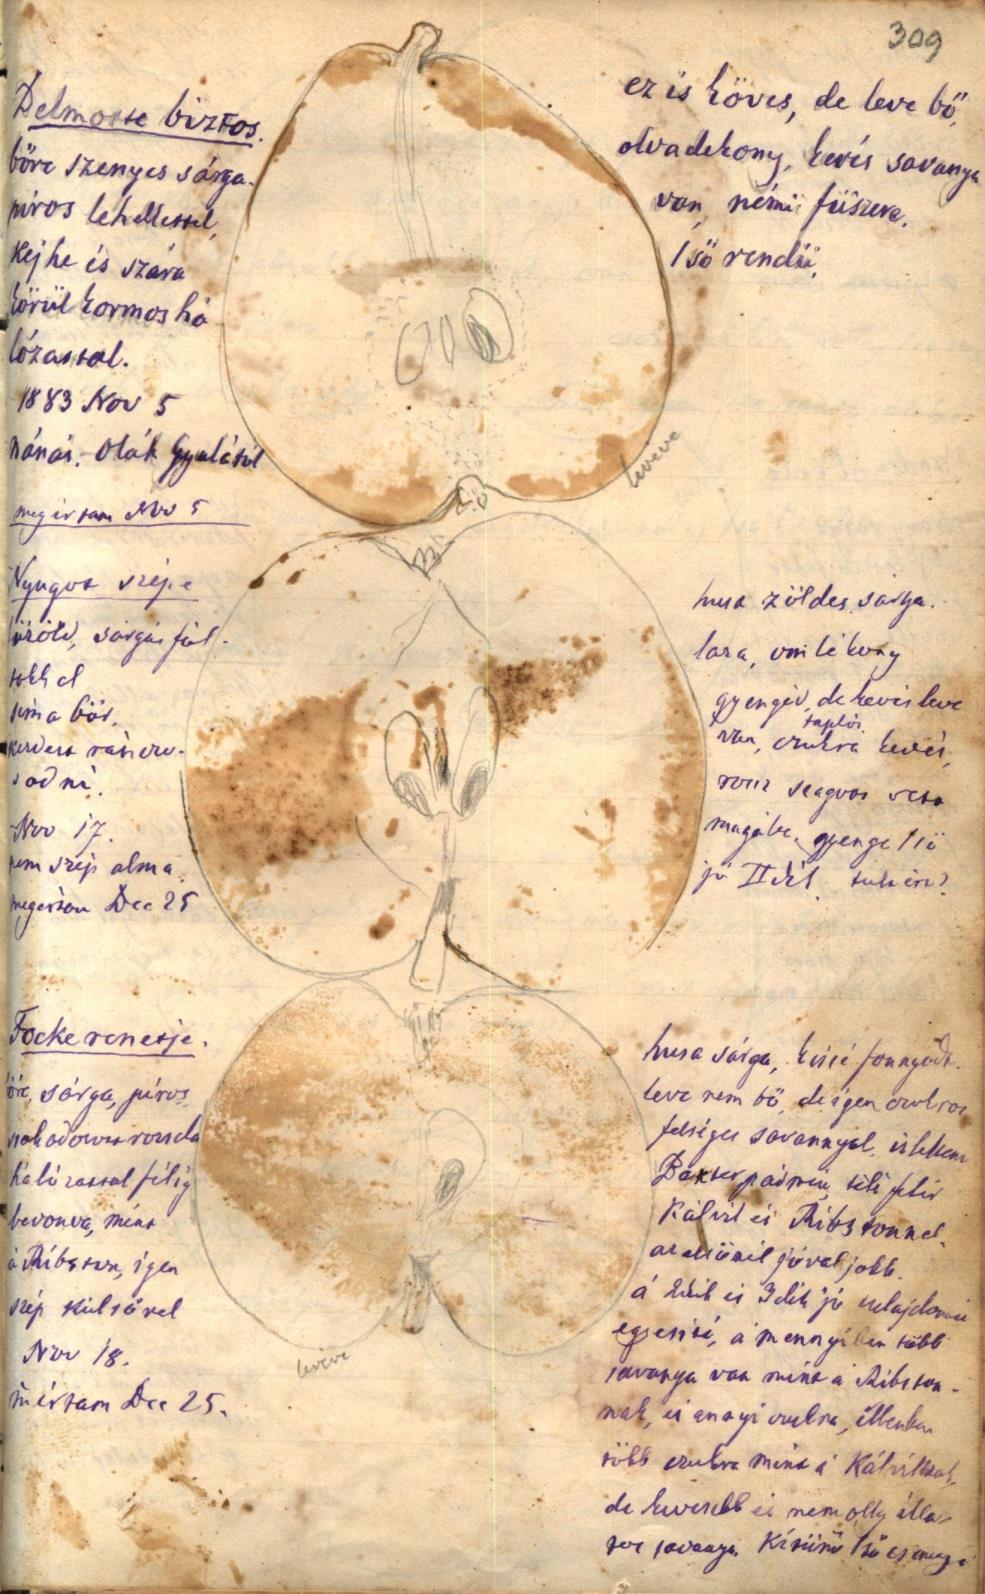 309
Delmosse biztos.
bőre szenyes sárga.
piros lehellettel,
Kejhe és szára
körül kormos há
lózassal.
1883 Nov 5
nánás. Oláh Gyulától
megirtam Nov 5
ez is köves, de leve bő,
olvadekony, kevés savanya
van, némi füszere.
I ső rendü.
levéve
Nyugot szépe
zöld, sárgás fol-
tokkal
sima bőr.
kezdett ránczo-
sodni.
Nov 17.
nem szép alma.
megirtam Dec 25
husa zöldes sárga.
laza, omlékony
gyengéd, de kevés leve
taplós
van, czukra kevés,
rosz szagvas
magába. gyenge I ső
jó II
Focke renetje.
sárga, piros
rozsda
hálózassal félig
bevonva, mint
a Ribston, igen
szép külsővel
Nov 18.
mértam Dec 25.
levéve
husa sárga, kissé fonnyadt.
leve nem bő, de igen czukros
felséges savannyal,
Baxter téli fehér
Kálvil és Ribstonnel.
jóval jobb.
a és jó tulajdonai
egyesití, a mennyiben több
savanya van mint a Ribston-
nak, és annyi czukra, ellenben
több czukra mint a Kálvilnak,
de kevesebb és nem olly illa-
tos savanya. Kitünő I ső